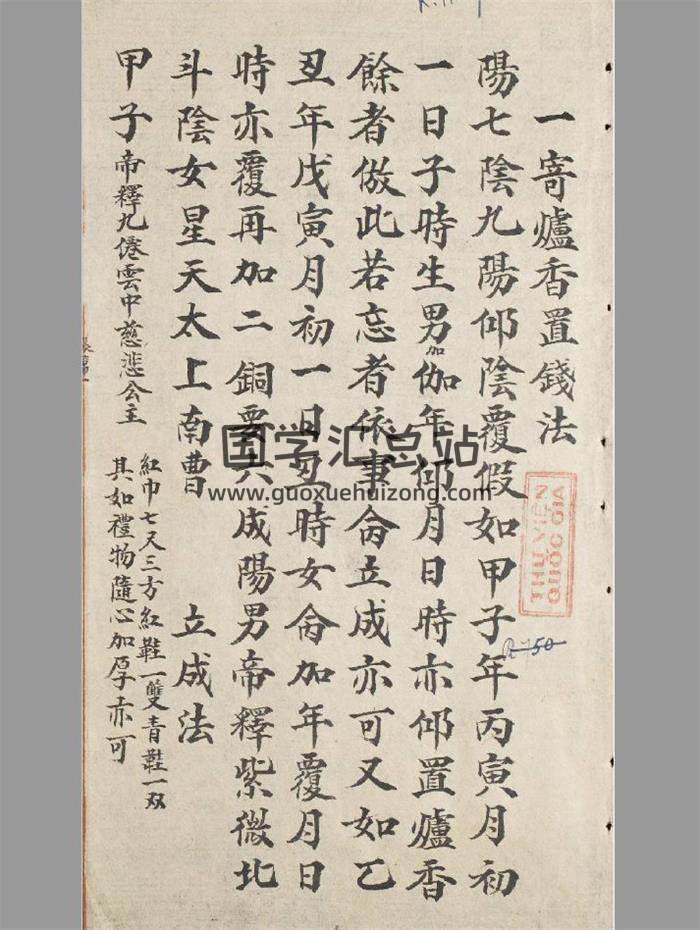 一寄爐香置錢法
陽七陰九陽仰陰覆假如甲子年丙寅月初
一日子時生男加伽年仰月日時亦仰置爐香
餘者倣此若忘者依事侖立成亦可又如乙
丑年戊寅月初一日丑時女侖加年覆月日
時亦覆再加二銅要六成陽男帝釋紫微北
斗陰女星天太上南曹 立成法
甲子帝釋九僊雲中慈悲公主 紅巾七尺三方紅鞋一雙青鞋一双
其如禮物隨心加厚亦可
THƯ VIỆN
QUỐC GIA
R 750
国学汇总站
www.guoxuehuizong.com